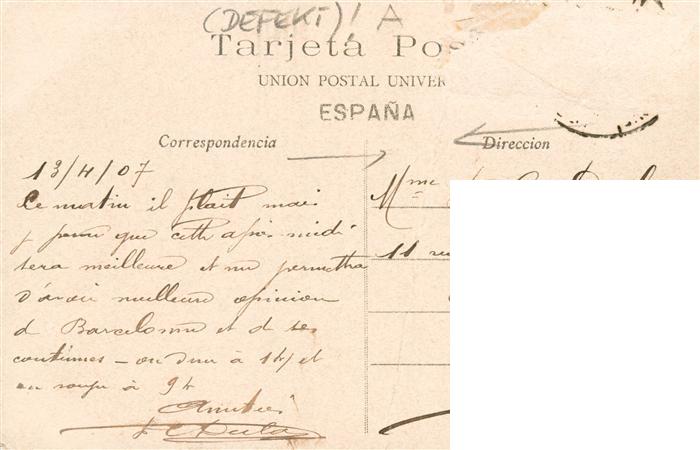 (DEFEKT)! A
Tarjeta Pos
UNION POSTAL UNIVER
ESPAÑA
Correspondencia
Direccion
13/4/07
Ce matin il plait mais
j que cette après-midi
sera meilleure et me permettra
d'avoir meilleure opinion
d Barcelonne et de ses
coutumes – on dine à 14/ et
on soupe à 9h
Amitiés
Mme
11 rue